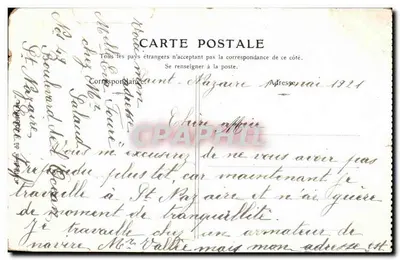 CARTE POSTALE
Tous les pays étrangers n'acceptent pas la correspondance de ce côté.
Se renseigner à la poste.
Correspondance
Adresse
Saint-Nazaire mai 1921
Vous m'excusez de ne vous avoir pas
répondu plus tôt car maintenant je
travaille à St Nazaire et n'ai guère
de moment de tranquillité.
je travaille chez un armateur de
navire Mr Vallée mais mon adresse est
Voici mon
adresse
Melle
chez Mr
Salaud
No 49
Boulevard de l'Océan
St Nazaire
Loire Inf